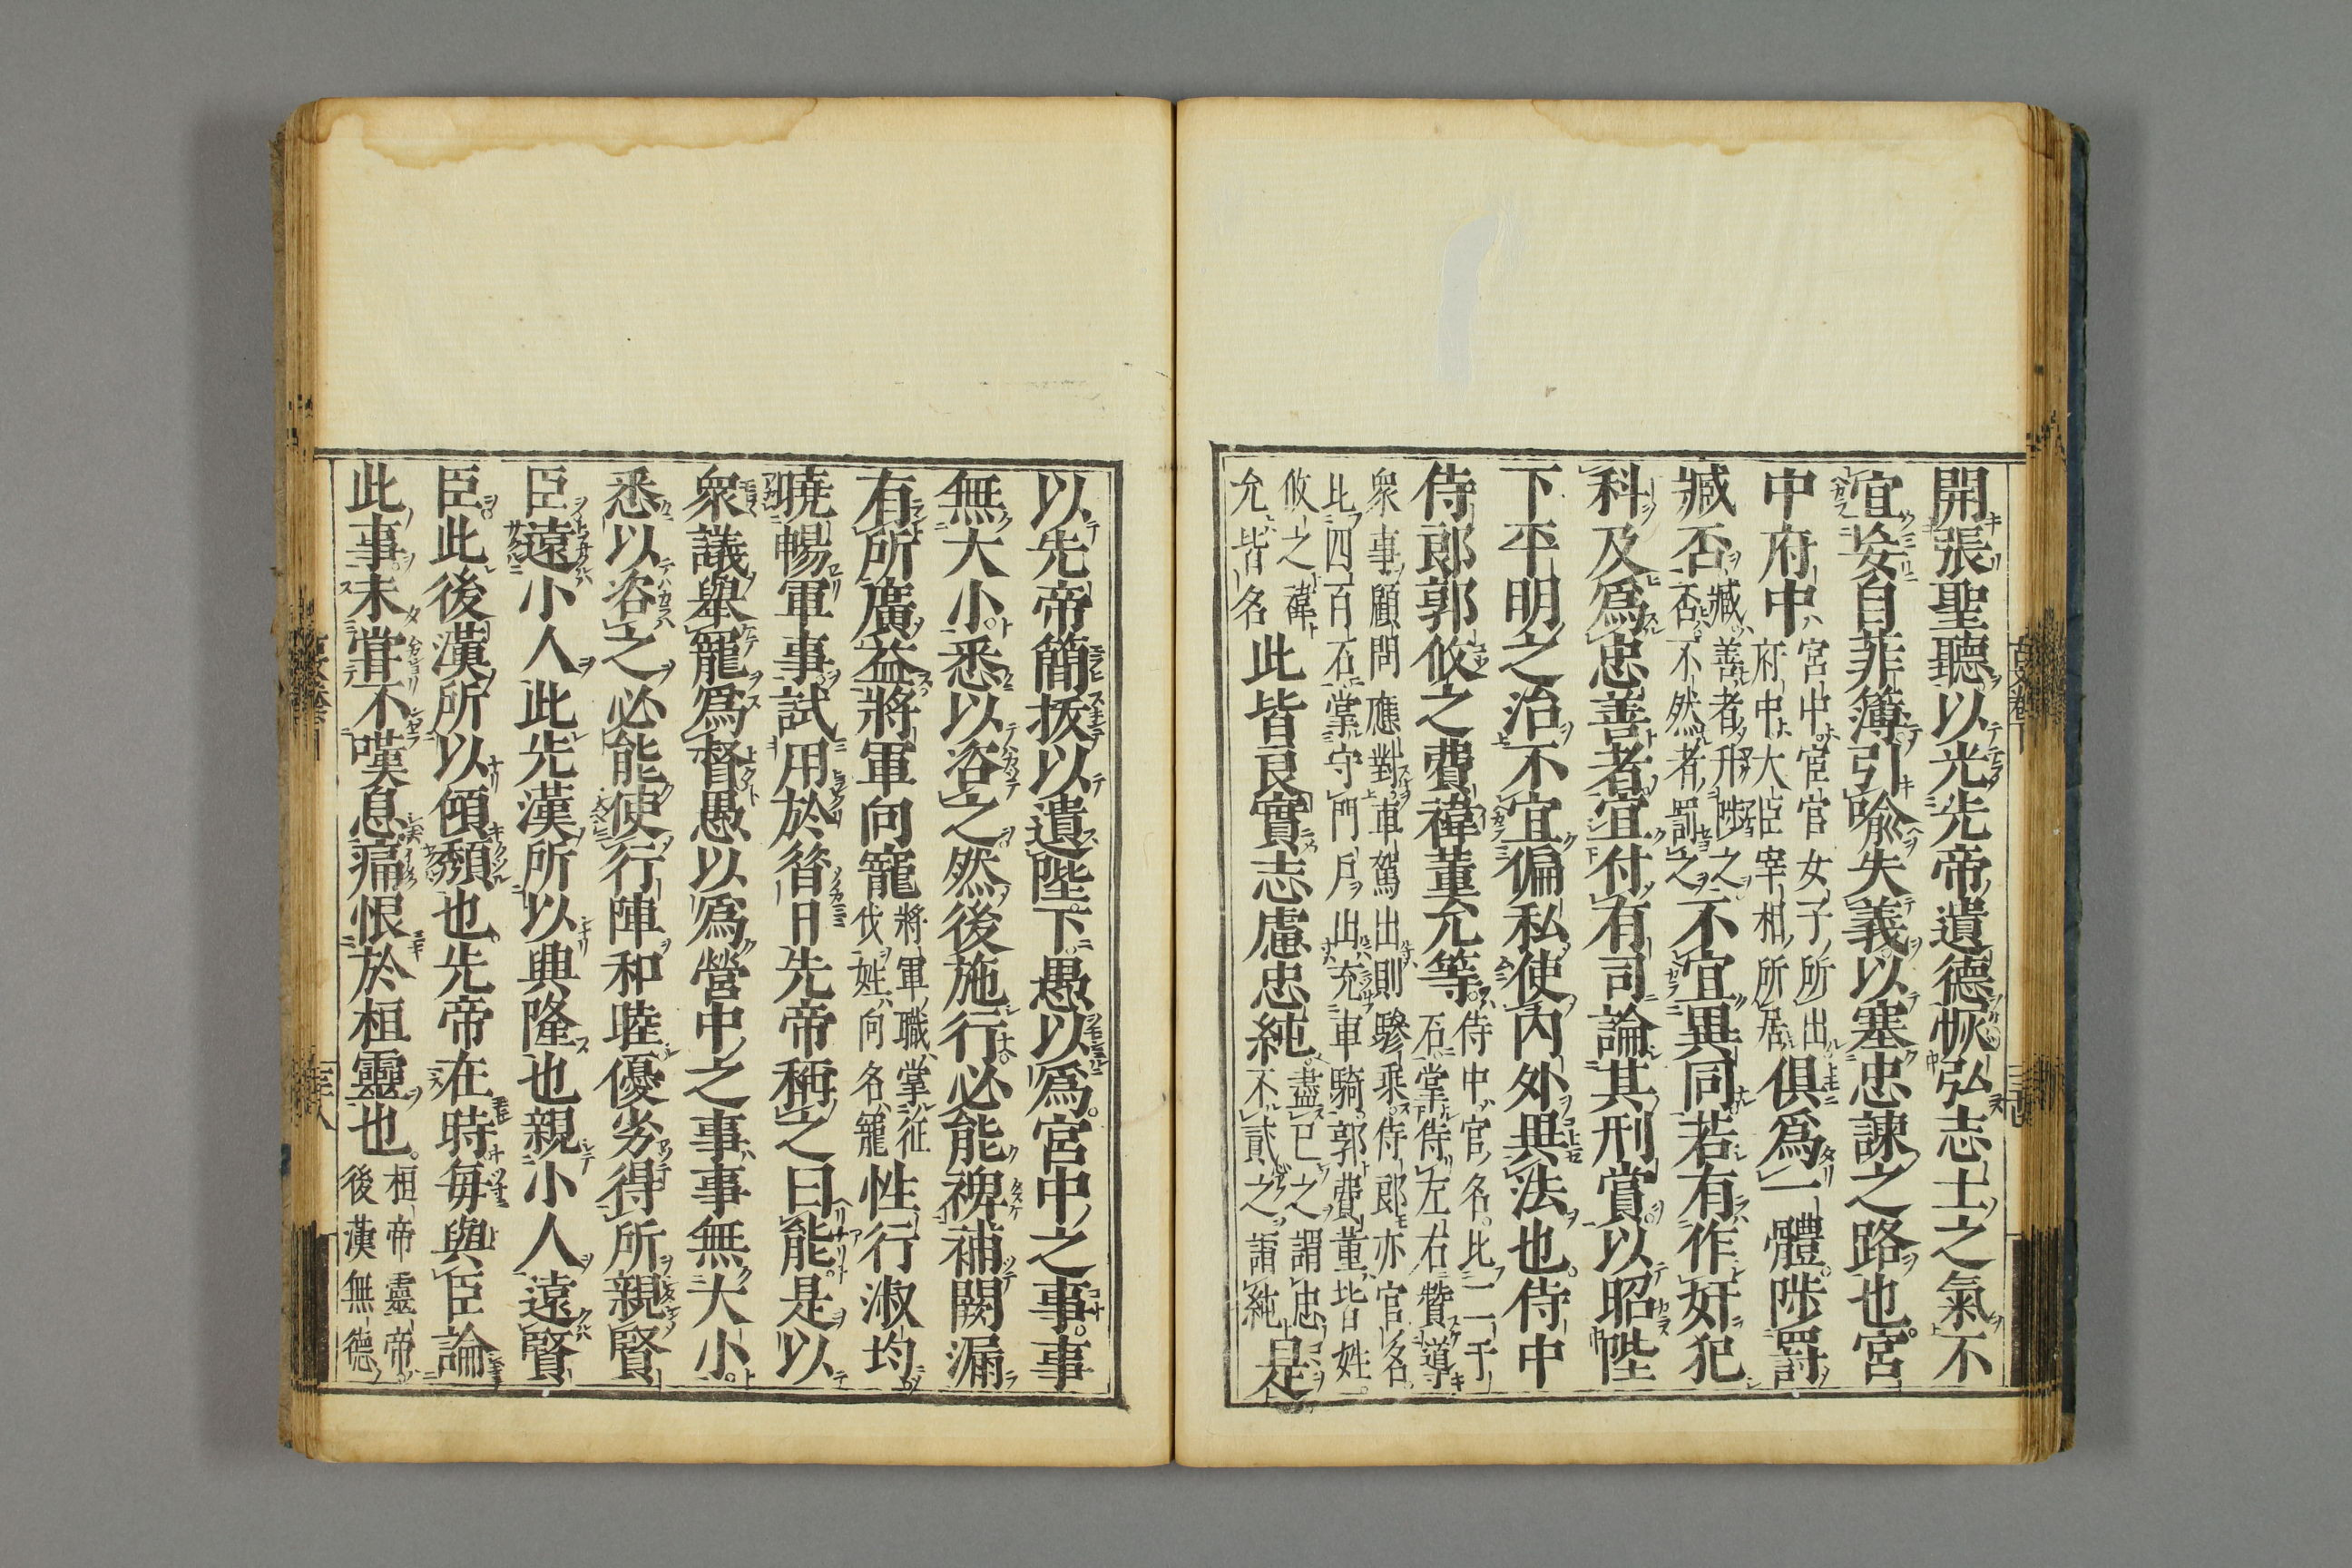 開張聖聽以光先帝遺德恢弘志士之氣不
宜妄自菲薄引喻失義以塞忠諫之路也宮
中府中宮中宦官女子所出府中大臣宰相所居俱爲一體陟罰
臧否臧善者陟之否不然者罰之不宜異同若有作奸犯
科及爲忠善者宜付有司論其刑賞以昭陛
下平明之治不宜偏私使內外異法也侍中
侍郎郭攸之費禕董允等侍中官名比二千石掌侍左右贊導
衆事顧問應對車駕出則驂乘侍郎亦官名
比四百石掌守門戶出充車騎郭費董皆姓
攸之禕允皆名此皆良實志慮忠純盡己之謂忠不貳之謂純是
以先帝簡拔以遺陛下愚以爲宮中之事事
無大小悉以咨之然後施行必能裨補闕漏
有所廣益將軍向寵將軍職掌征伐姓向名寵性行淑均
曉暢軍事試用於昝日先帝稱之曰能是以
衆議舉寵爲督愚以爲營中之事事無大小
悉以咨之必能使行陣和睦優劣得所親賢
臣遠小人此先漢所以興隆也親小人遠賢
臣此後漢所以傾頹也先帝在時每與臣論
此事未嘗不嘆息痛恨於桓靈也桓帝靈帝後漢無德